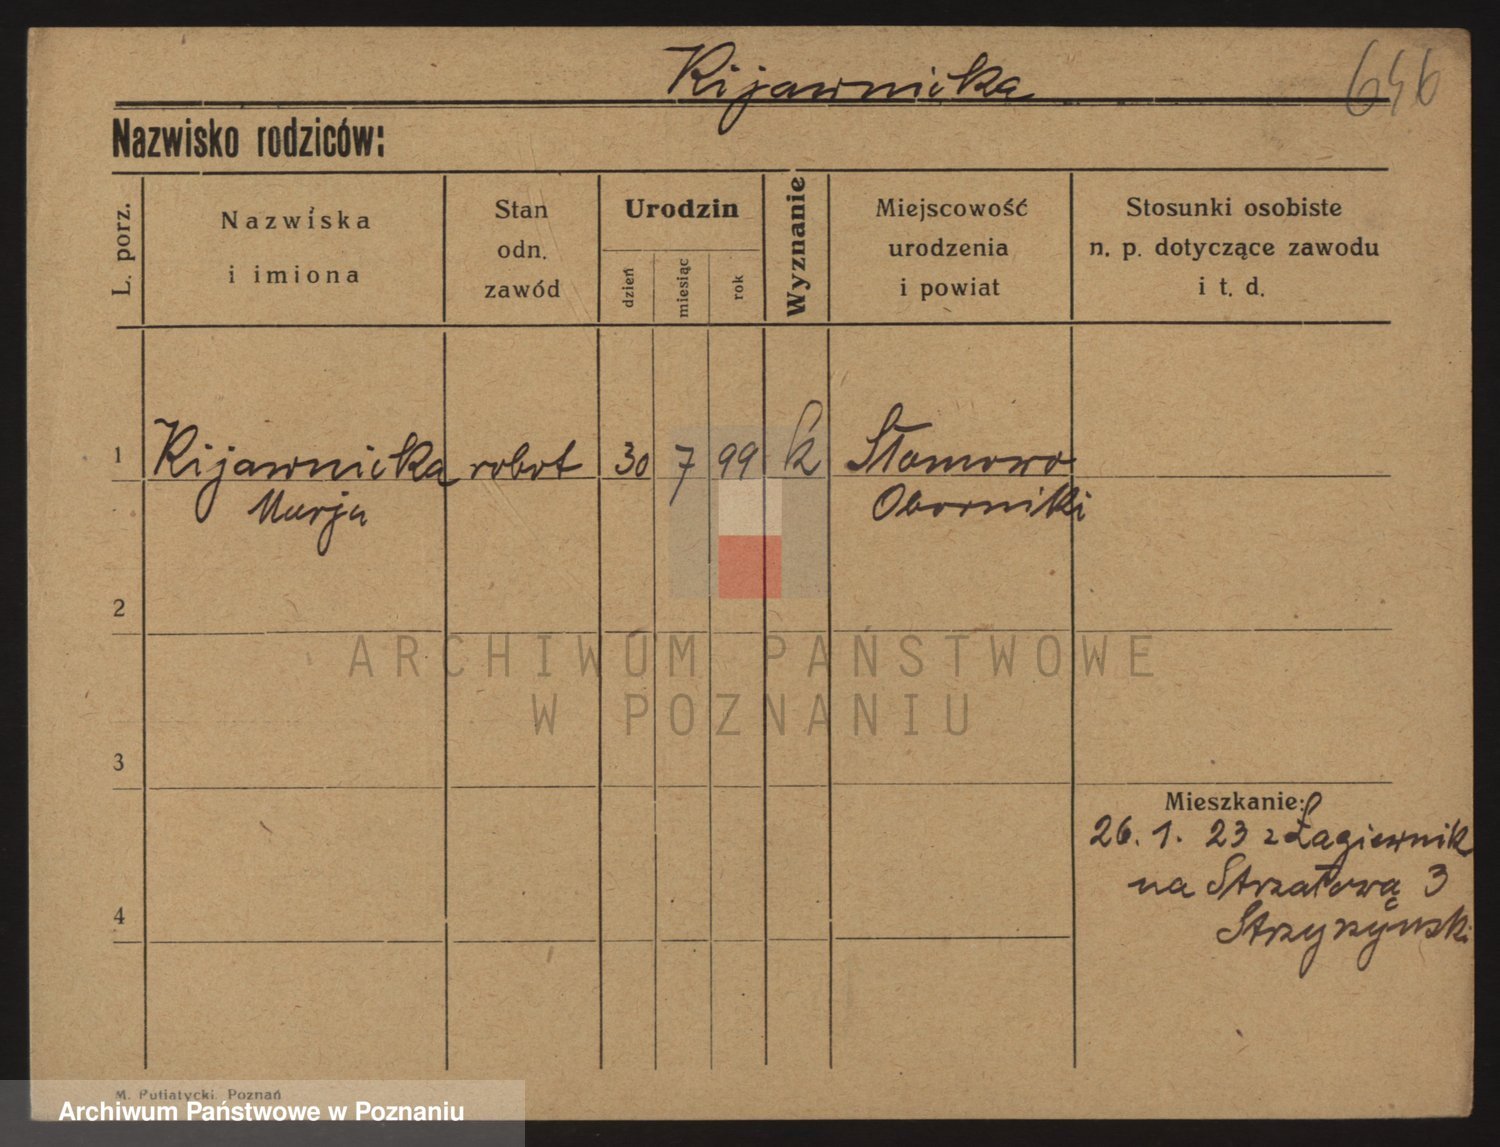 Kijawnicka
646
Nazwisko rodziców:
L. porz.
Nazwiska
i imiona
Stan
odn.
zawód
Urodzin
dzień
miesiąc
rok
Wyznanie
Miejscowość
urodzenia
i powiat
Stosunki osobiste
n. p. dotyczące zawodu
i t. d.
1 Kijawnicka robot 30 7 99 k Słomowo
Marja Oborniki
2
ARCHIWUM PAŃSTWOWE
W POZNANIU
3
Mieszkanie:
26. 1. 23 z Łagiewnik
na Strzałową 3
4
Strzyżyński
M. Putiatycki, Poznań
Archiwum Państwowe w Poznaniu